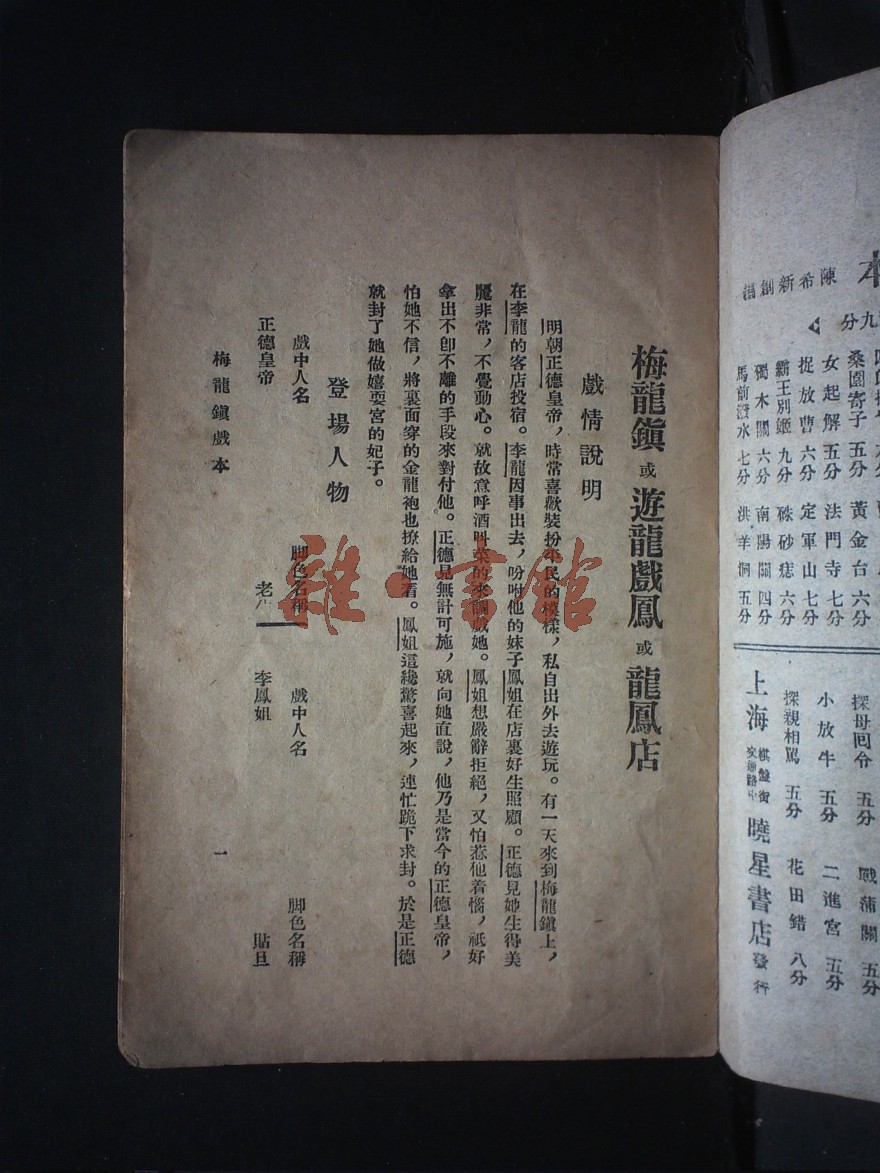 梅龍鎭 或 遊龍戲鳳 或 龍鳳店
戲情說明
明朝正德皇帝，時常喜歡裝扮平民的模樣，私自出外去遊玩。有一天來到梅龍鎭上，
在李龍的客店投宿。李龍因事出去，吩咐他的妹子鳳姐在店裏好生照顧。正德見她生得美
麗非常，不覺動心。就故意呼酒叫菜的來調戲她。鳳姐想嚴辭拒絕，又怕惹他着惱，祇好
拿出不卽不離的手段來對付他。正德見無計可施，就向她直說，他乃是當今的正德皇帝，
怕她不信，將裏面穿的金龍袍也撩給她看。鳳姐這纔驚喜起來，連忙跪下求封。於是正德
就封了她做嬉耍宮的妃子。
登場人物
戲中人名 脚色名稱 戲中人名 脚色名稱
正德皇帝 老 李鳳姐 貼旦
梅龍鎭戲本 一
雜·書館
本
陳希新創編
九分
桑園寄子 五分 黃金台 六分
女起解 五分 法門寺 七分
捉放曹 六分 定軍山 七分
霸王別姬 九分 硃砂痣 六分
獨木關 六分 南陽關 四分
馬前潑水 七分 洪羊洞 五分
探母回令 五分 戰蒲關 五分
小放牛 五分 二進宮 五分
探親相罵 五分 花田錯 八分
上海 棋盤街 交通路中 曉星書店 發行